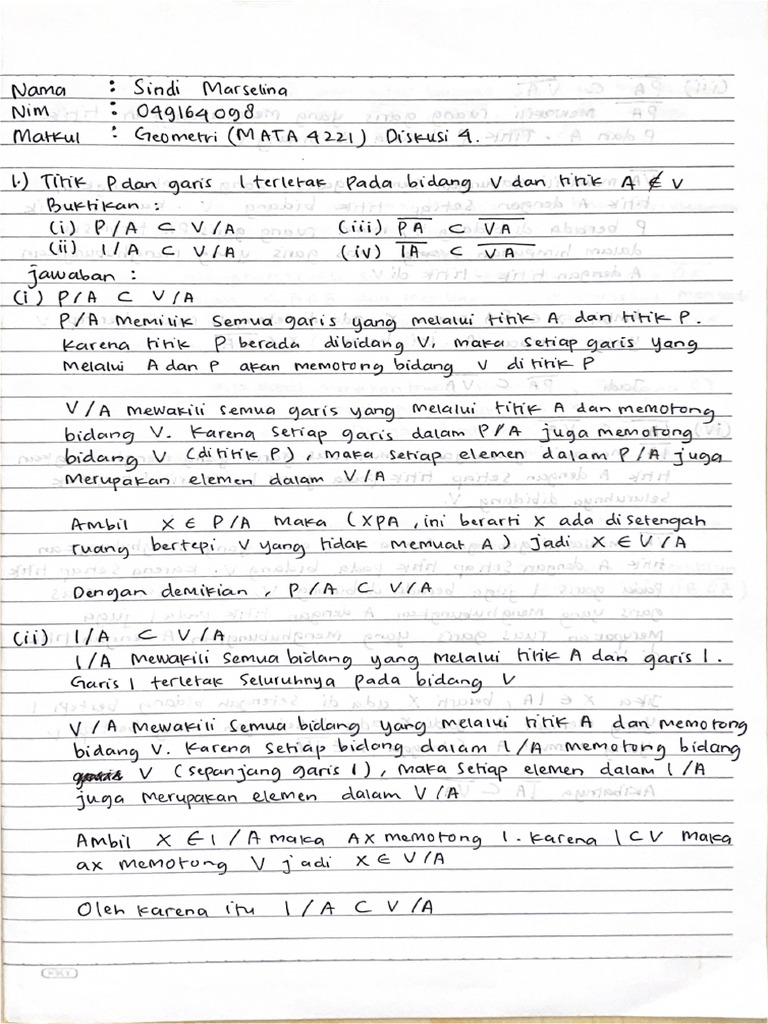 Nama : Sindi Marselina
Nim : 049164098
Matkul : Geometri (MATA 4221) Diskusi 4.
1.) Titik P dan garis l terletak pada bidang V dan titik A ∉ V
Buktikan :
(i) P/A ⊂ V/A (iii) \overline{PA} ⊂ \overline{VA}
(ii) l/A ⊂ V/A (iv) \overline{lA} ⊂ \overline{VA}
jawaban :
(i) P/A ⊂ V/A
P/A Memilik semua garis yang melalui titik A dan titik P.
Karena titik P berada dibidang V, maka setiap garis yang
Melalui A dan P akan memotong bidang V di titik P
V/A mewakili semua garis yang melalui titik A dan memotong
bidang V. Karena setiap garis dalam P/A juga memotong
bidang V (dititik P), maka setiap elemen dalam P/A juga
Merupakan elemen dalam V/A
Ambil X ∈ P/A maka (XPA, ini berarti X ada disetengah
ruang bertepi V yang tidak memuat A) jadi X ∈ V/A
Dengan demikian, P/A ⊂ V/A
(ii) l/A ⊂ V/A
l/A Mewakili semua bidang yang melalui titik A dan garis l.
Garis l terletak seluruhnya pada bidang V
V/A Mewakili semua bidang yang melalui titik A dan memotong
bidang V. Karena setiap bidang dalam l/A memotong bidang
V (sepanjang garis l), maka setiap elemen dalam l/A
juga merupakan elemen dalam V/A
Ambil X ∈ l/A maka AX memotong l. Karena l ⊂ V maka
ax memotong V jadi X ∈ V/A
Oleh karena itu l/A ⊂ V/A